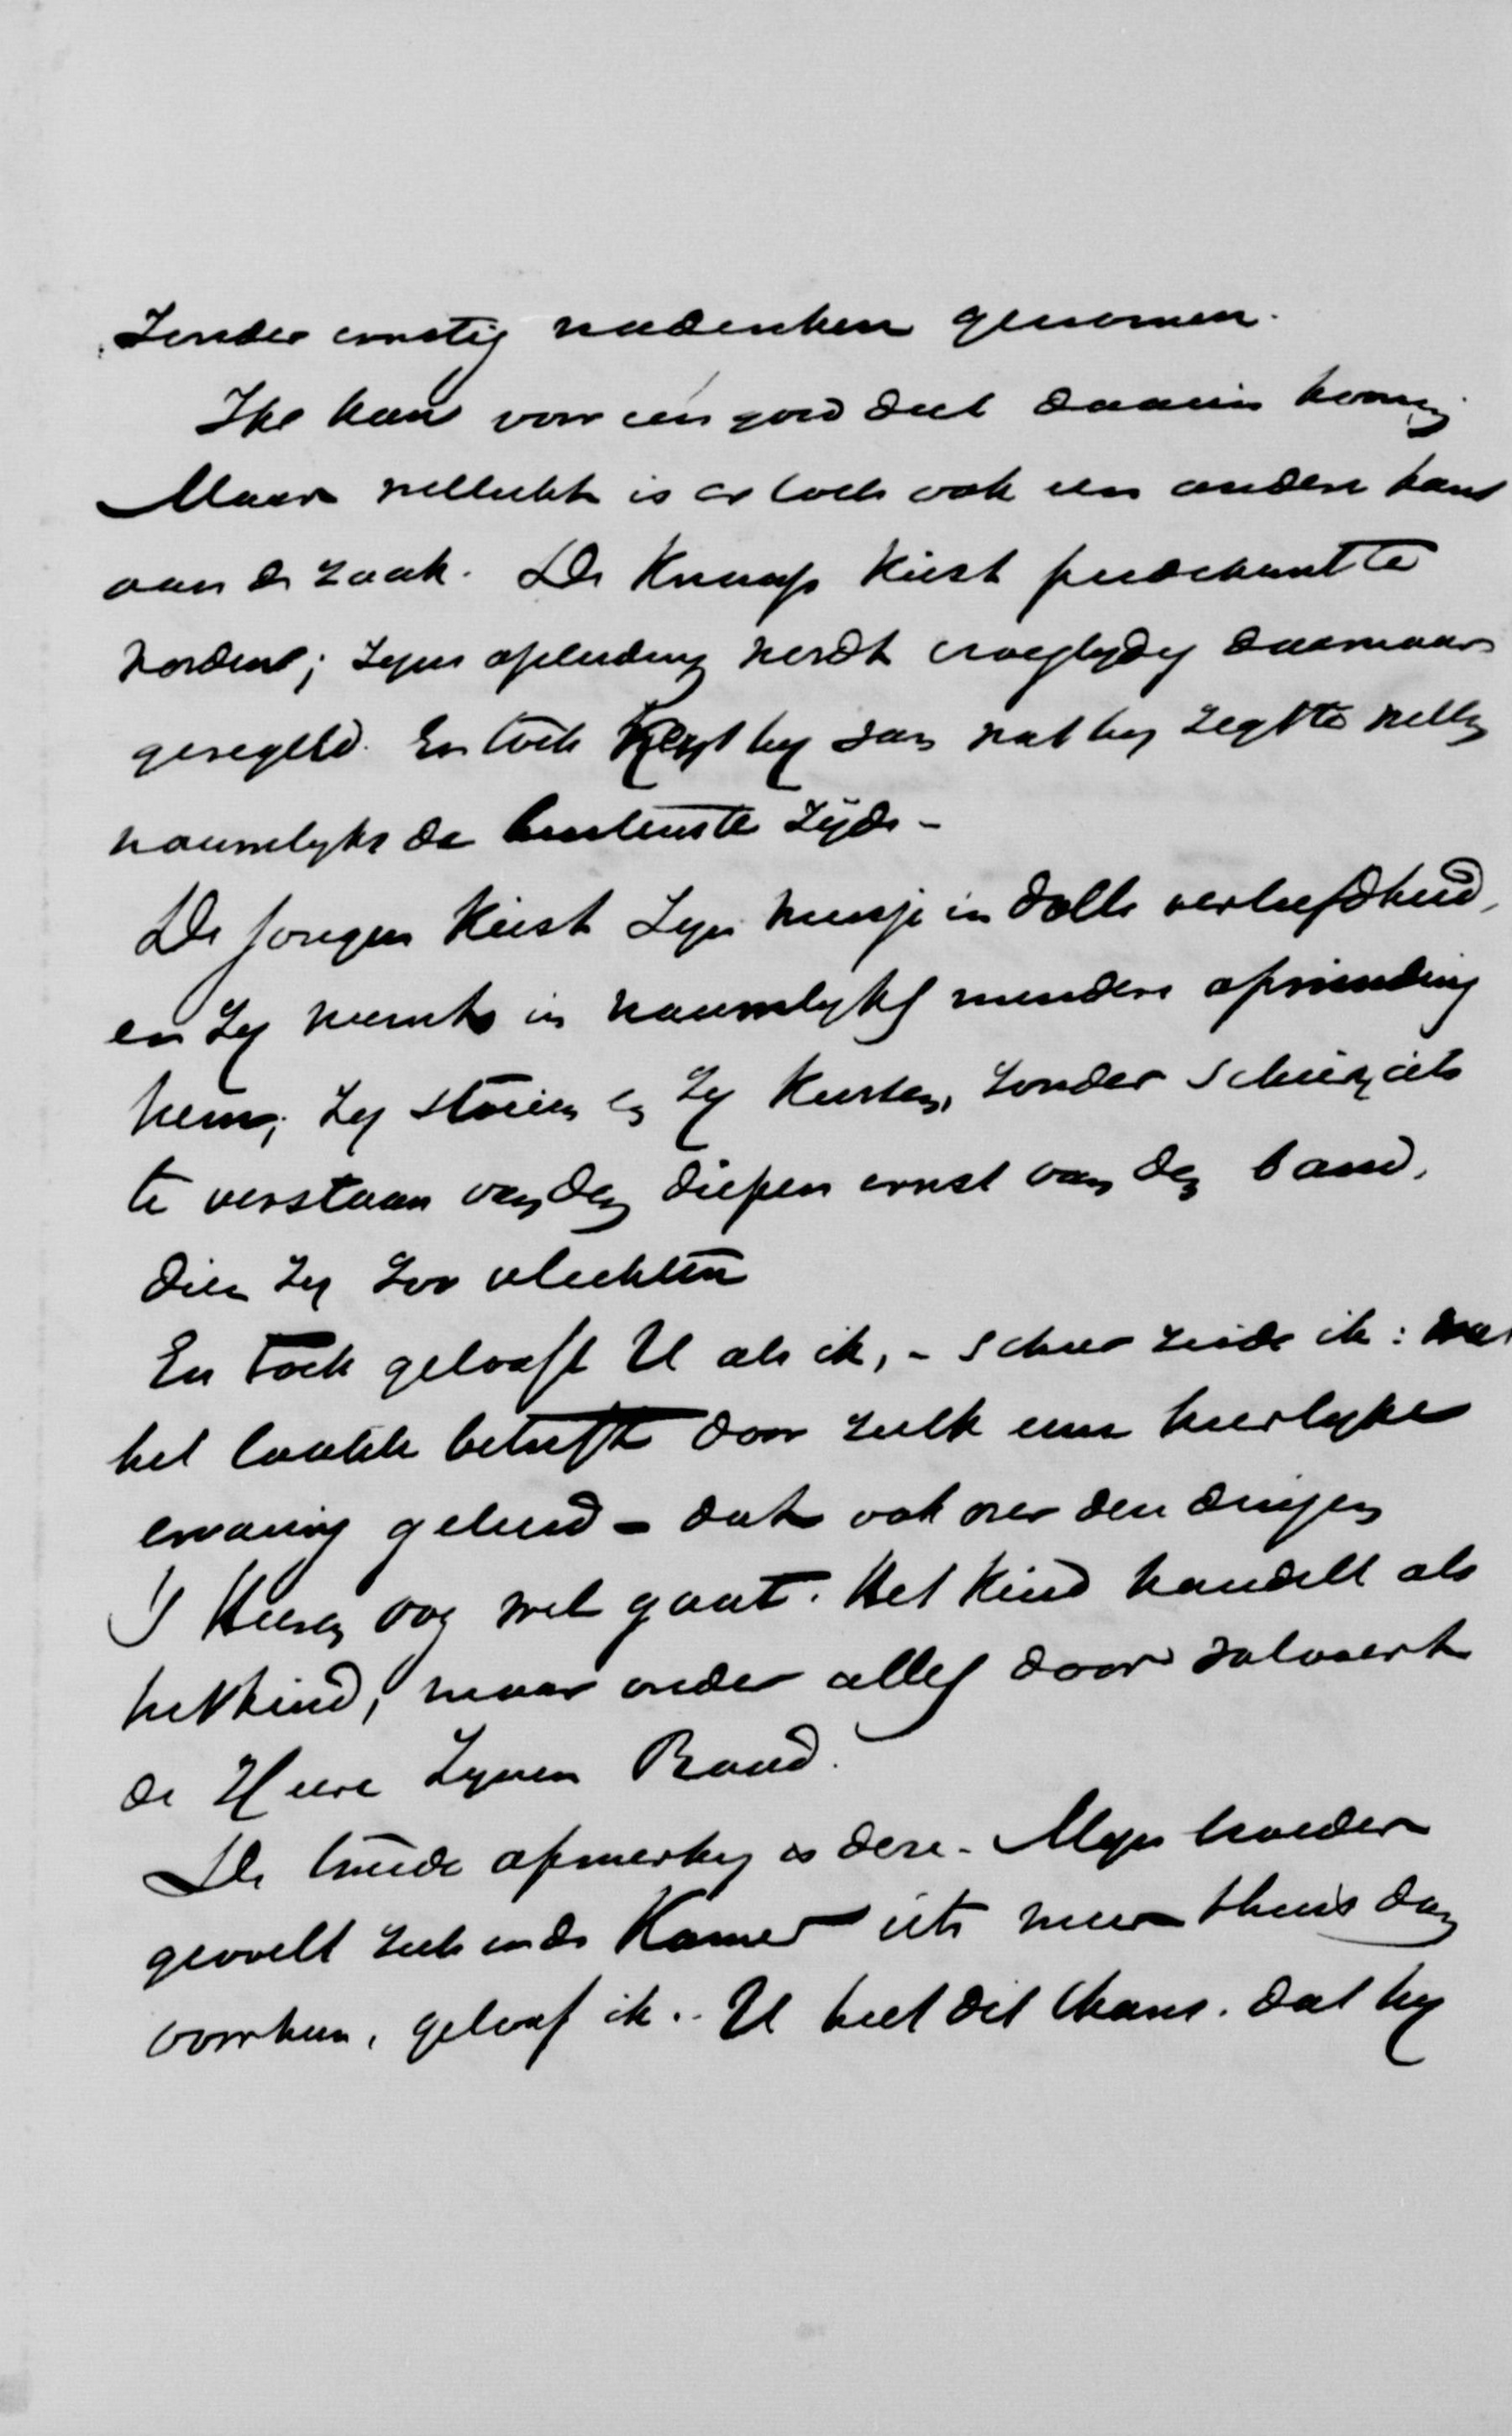 Zonder ernstig nadenken genomen.
Ik kan voor een goed deel daarin komen.
Maar wellicht is er toch ook een andere kant
aan de zaak. De knaap kiest predikant te
worden; zijn opleiding wordt vroegtydig daarnaar
geregeld. En toch kent hy van wat hy zegt te willen
nauwelyks de buitenste zyde -
De jongen kiest zyn meisje in dolle verliefdheid,
en zy neemt in nauwelyks mindere opwinding
hem; zy stoeien en zy kussen, zonder schier iets
te verstaan van den diepen ernst van den band,
dien zy zoo vlechten
En toch gelooft U als ik, - schier zeide ik: wat
het laatste betreft door zulk eene heerlyke
ervaring geleerd - dat ook over den dingen
's Heeren oog wel gaat. Het kind handelt als
het kind, maar onder alles door volvoert
de Heere Zynen Raad.
De tweede opmerking is deze. Myn broeder
gevoelt zich in de Kamer iets meer thuis dan
voorheen, geloof ik. U hielt dit thans. dat hy